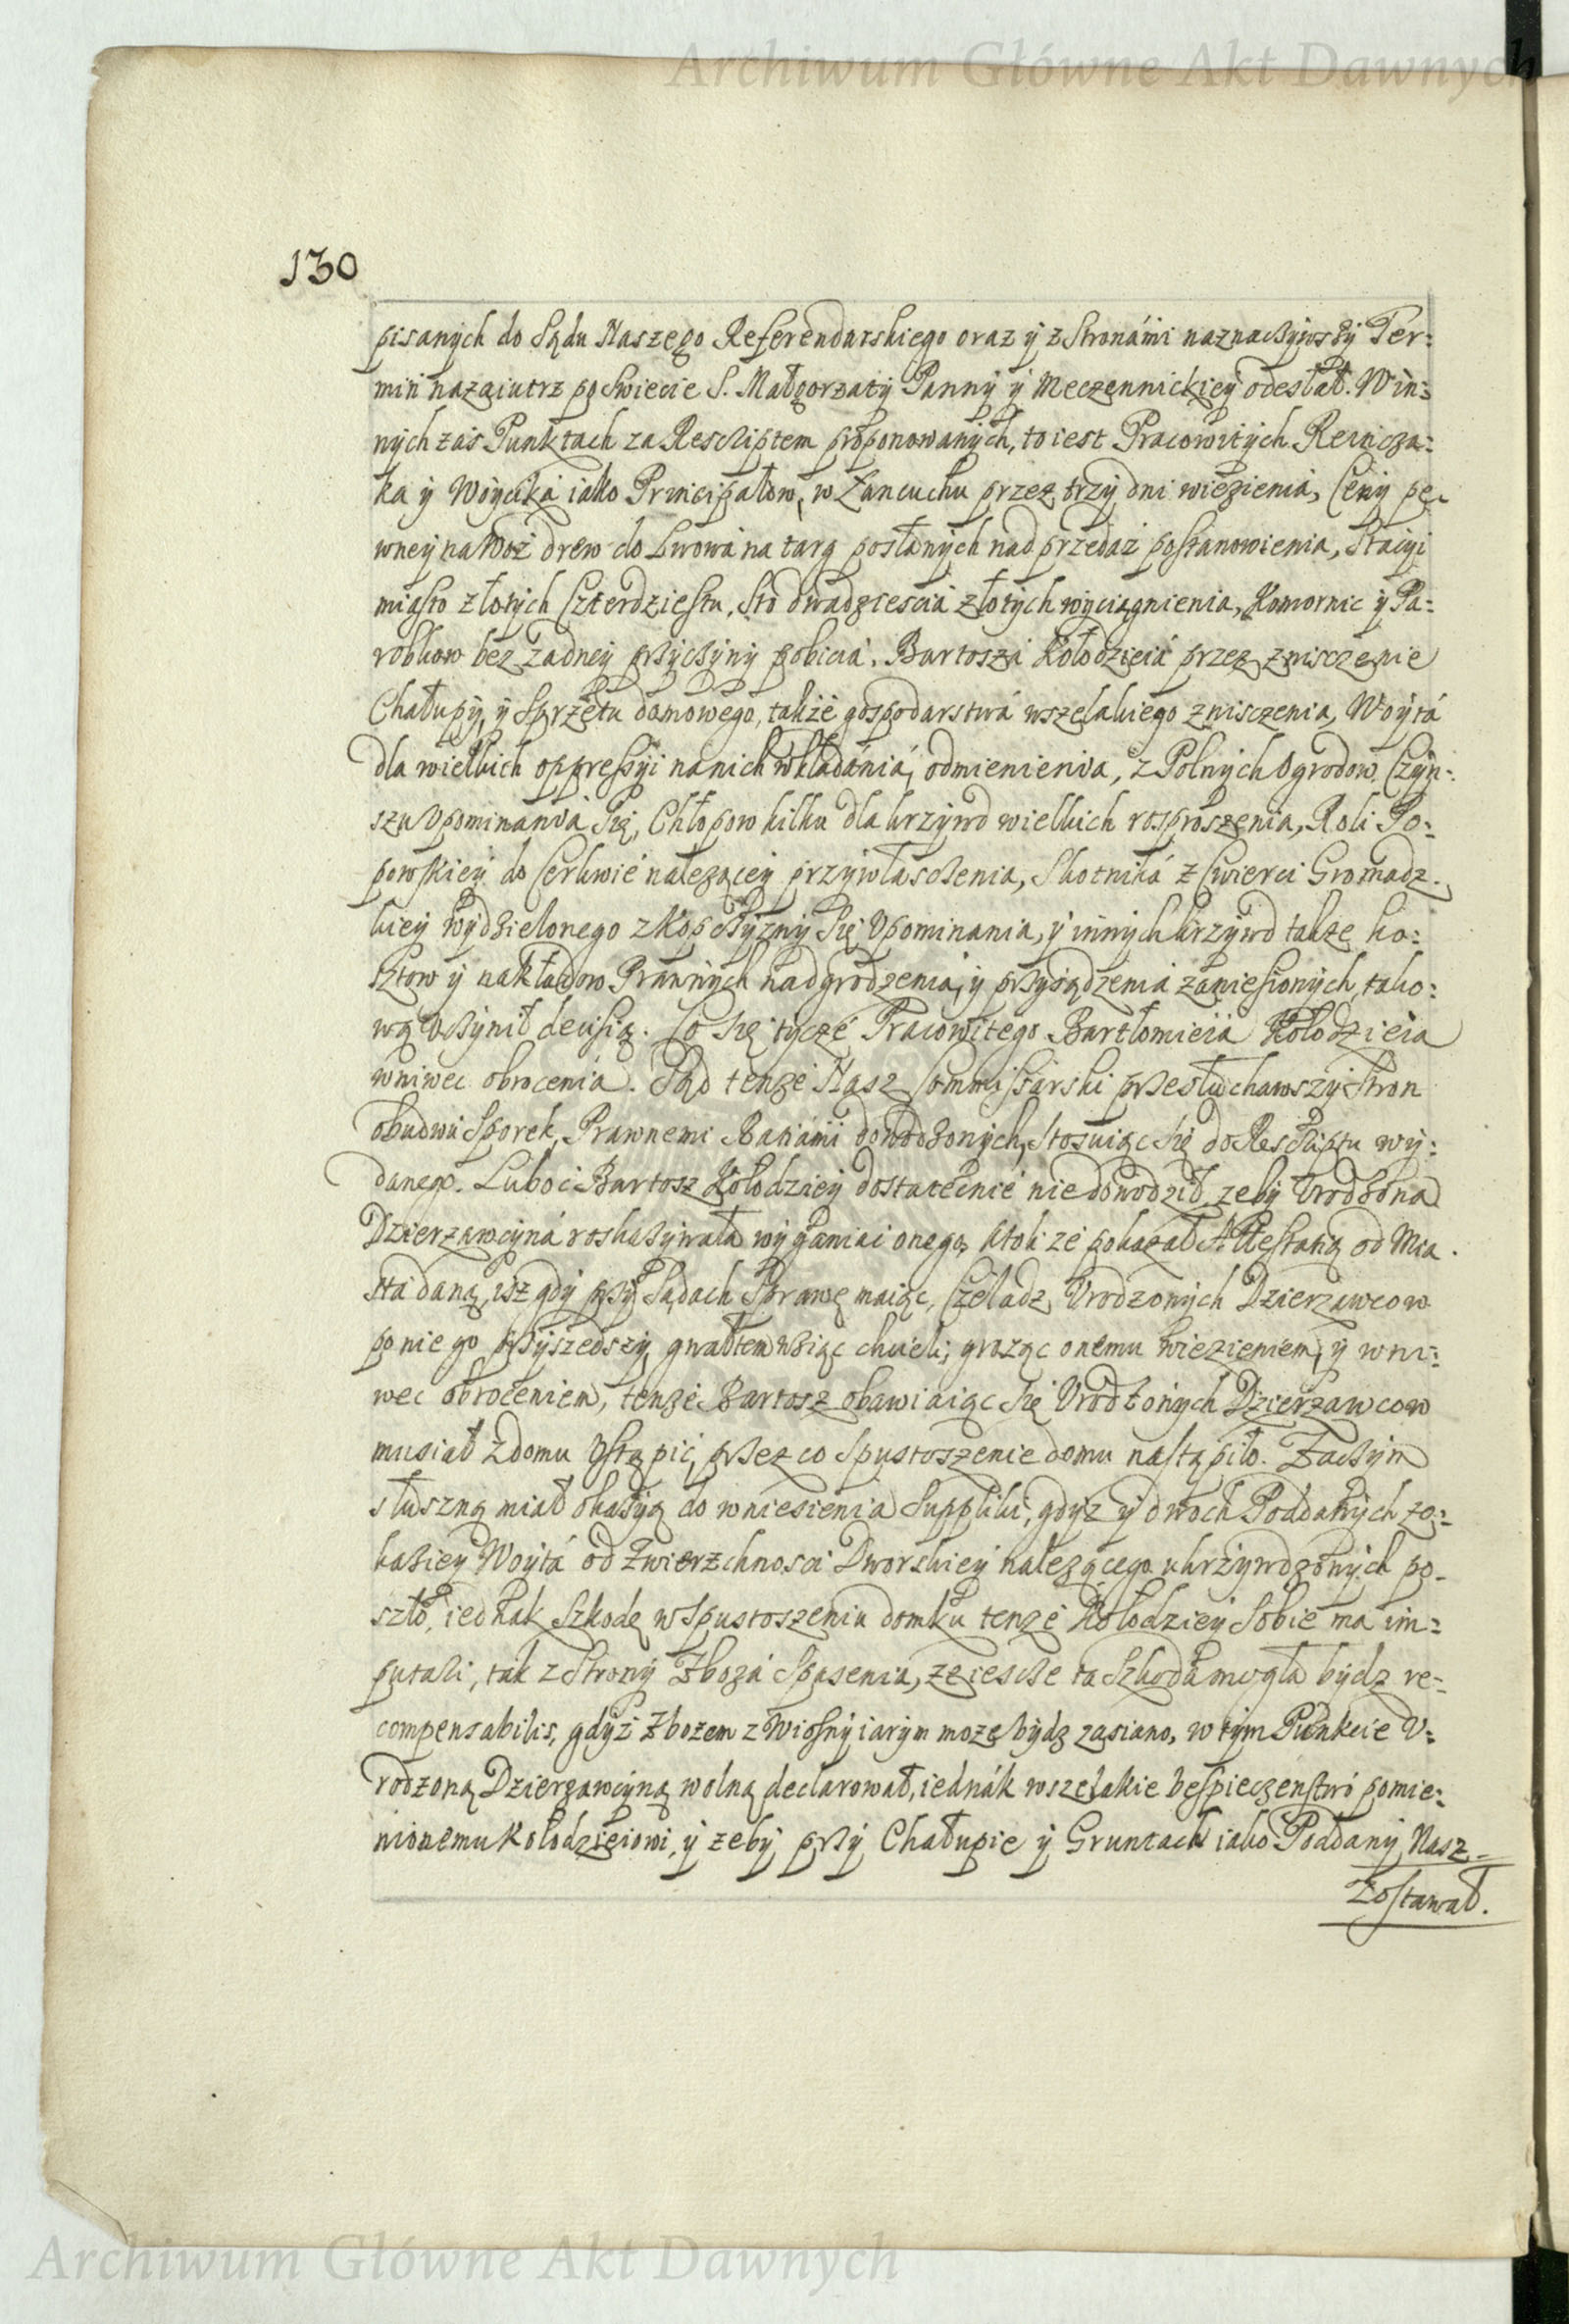 Archiwum Główne Akt Dawnych
130
pisanych do Sądu Naszego Referendarskiego oraz y z Stronámi naznaczywszy Ter:
min nazaiutrz po Swiecie S. Małgorzaty Panny y Meczennickiey odesłał. W in:
nych zaś Punktach za Rescriptem proponowanych, to iest Pracowitych
ka y Woycika iako Principałow, w Łancuchu przez trzy dni wiezienia, Ceny pe:
wney na Woż drew do Lwowa na targ posłanych nad przedaż postanowienia, Stacyi
miasto złotych Czterdziestu, Sto dwadziescia złotych wyciągnienia, Komornic y Pa:
robkow bez żadney przyczyny pobicia. Bartosza Kołodzieia przez znisczenie
Chałupy y Sprzętu domowego, także gospodarstwá wszelakiego znisczenia, Woytá
dla wielkich oppressyi na nich wkładánia, odmienienia, z Polnych Ogrodow Czyn:
szu Vpominania się, Chłopow kilku dla krzywd wielkich rosproszenia, Roli Po:
powskiey do Cerkwie należącey przywłasczenia, Skotniká z Cwierci Gromadz:
kiey wydzielonego z Kopczyzny się Vpominania, y innych krzywd także ko:
sztow y nakładow Prawnych nadgrodzenia, y przysądzenia zaniesionych, tako:
wą Vczynił decisią. Co się tycze Pracowitego Bartłomieia Kołodzieia
wniwec obrocenia. Sąd tenże Nasz Commissarski przesłuchawszy Stron
obudwu Sporek, Prawnemi Ratiámi dowodzonych, stosuiąc się do Rescriptu wy:
danego. Luboć Bartosz Kołodziey dostatecznie nie dowodził, zeby Vrodzona
Dzierzawczyná roskazywała wyganiać onego, Atoli że pokazał Attestatią od Mia:
sta daną, isz gdy przy Sądach Sprawę maiąc, Czeladz Vrodzonych Dzierzawcow
po niego przyszedszy gwałtem wziąc chcieli, grożąc onemu wiezieniem, y wni:
wec obroceniem, tenże Bartosz obawiaiąc się Vrodzonych Dzierzawcow
musiał z domu Vstąpić, przez co Spustoszenie domu nastąpiło. Zaczym
słuszną miał okazyą do wniesienia Suppliki, gdyż y dwoch Poddanych zo:
kaziey Woytá od Zwierzchnosci Dworskiey należącego ukrzywdzonych po:
szło, iednak Szkodę w Spustoszeniu domku tenże Kołodziey Sobie ma im:
putari, tak z Strony Zboża Spasenia, że iescze ta Szkoda mogła bydz re:
compensabilis, gdyż Zbożem z Wiosny iarym może bydz zasiano, w tym Punkcie V:
rodzoną Dzierzawczyną wolną declarował, iednák wszelakie bespieczenstwo pomie:
nionemu Kołodzieiowi, y żeby przy Chałupie y Gruntach iako Poddany Nasz
Zostawał.
Archiwum Główne Akt Dawnych